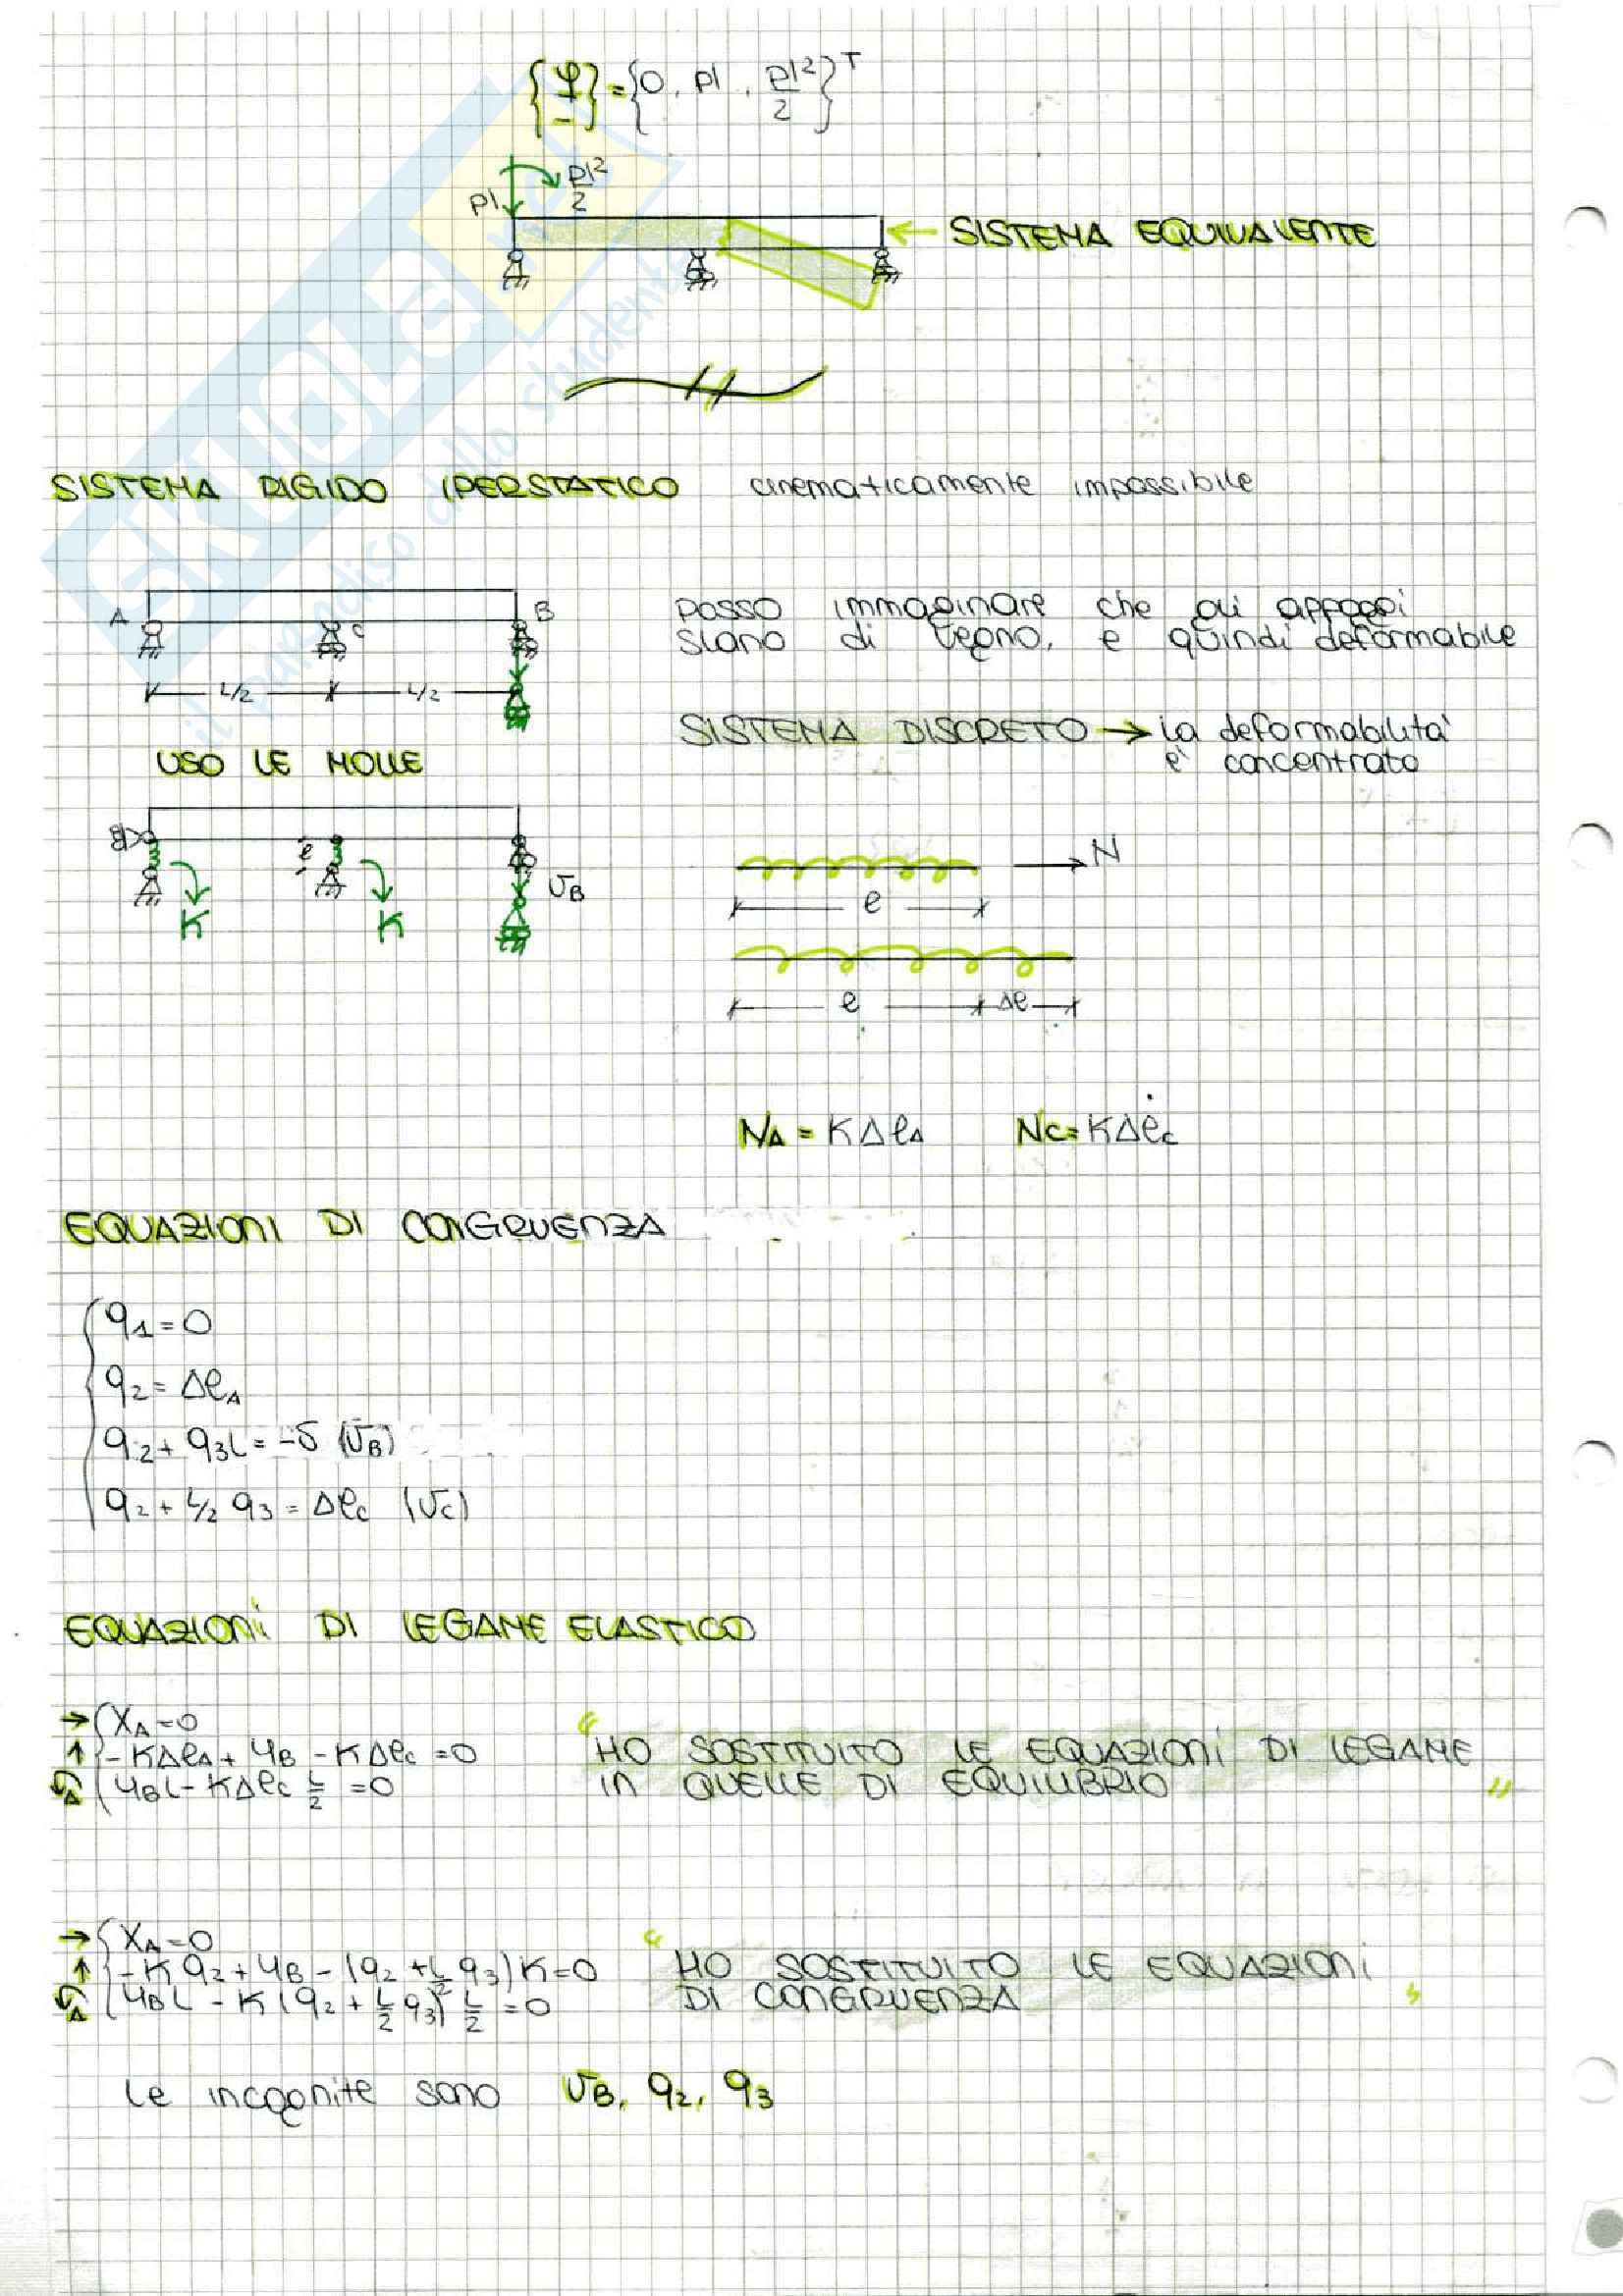 {φ} = {0, pl, pl²/2}ᵀ
pl pl²/2
← SISTEMA EQUIVALENTE
SISTEMA RIGIDO IPERSTATICO cinematicamente impossibile
A C B
L/2 L/2
posso immaginare che gli appoggi
siano di legno, e quindi deformabile
SISTEMA DISCRETO → la deformabilità
è concentrata
USO LE MOLLE
l K K VB
N
l
l Δl
NA = KΔlA NC = KΔlC
EQUAZIONI DI CONGRUENZA
q1 = 0
q2 = ΔlA
q2 + q3L = -δ (VB)
q2 + L/2 q3 = ΔlC (VC)
EQUAZIONI DI LEGAME ELASTICO
→ XA = 0
↑ -KΔlA + YB - KΔlC = 0
A YBL - KΔlC L/2 = 0
"HO SOSTITUITO LE EQUAZIONI DI LEGAME
IN QUELLE DI EQUILIBRIO"
→ XA = 0
↑ -Kq2 + YB - (q2 + L/2 q3)K = 0
A YBL - K(q2 + L/2 q3) L/2 = 0
"HO SOSTITUITO LE EQUAZIONI
DI CONGRUENZA"
le incognite sono VB, q2, q3
SKUOLA
il paradiso dello studente